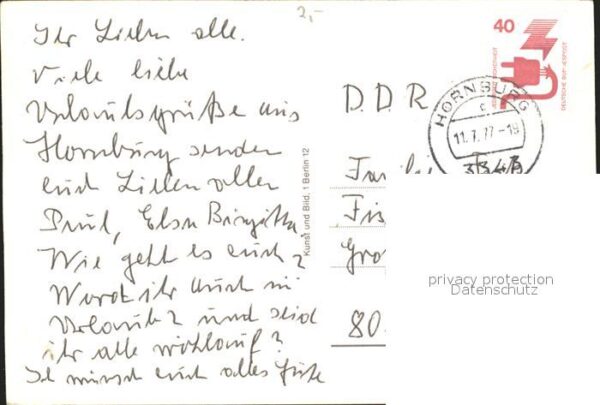 2,-
Ihr Lieben alle.
Viele liebe
Urlaubsgrüße aus
Hornburg senden
euch Lieben allen
Paul, Elsa Birgitta
Wie geht es euch?
Wart ihr auch in
Urlaub? und seid
ihr alle wohlauf?
Ich wünsch euch alles Gute
Kunst und Bild, 1 Berlin 12
40
DEUTSCHE BUNDESPOST
HORNBURG
c
11.7.77-19
3343
D.D.R.
Fa
Fis
Gro
80
privacy protection
Datenschutz